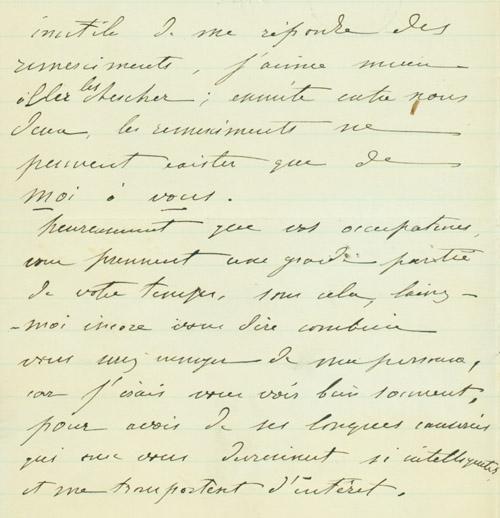 inutile de me répondre des
remerciments, j'aime mieux
aller les chercher ; ensuite entre nous
deux, les remerciments ne
peuvent exister que de
moi à vous.
heureusement que vos occupations,
vous prennent une grande partie
de votre temps, sans cela, laissez-
-moi encore vous dire combien
vous ennuyer de ma personne,
car j'irais vous voir bien souvent,
pour avoir de ses longues causeries
qui avec vous deviennent si intelligentes
et me transportent d'intérêt.